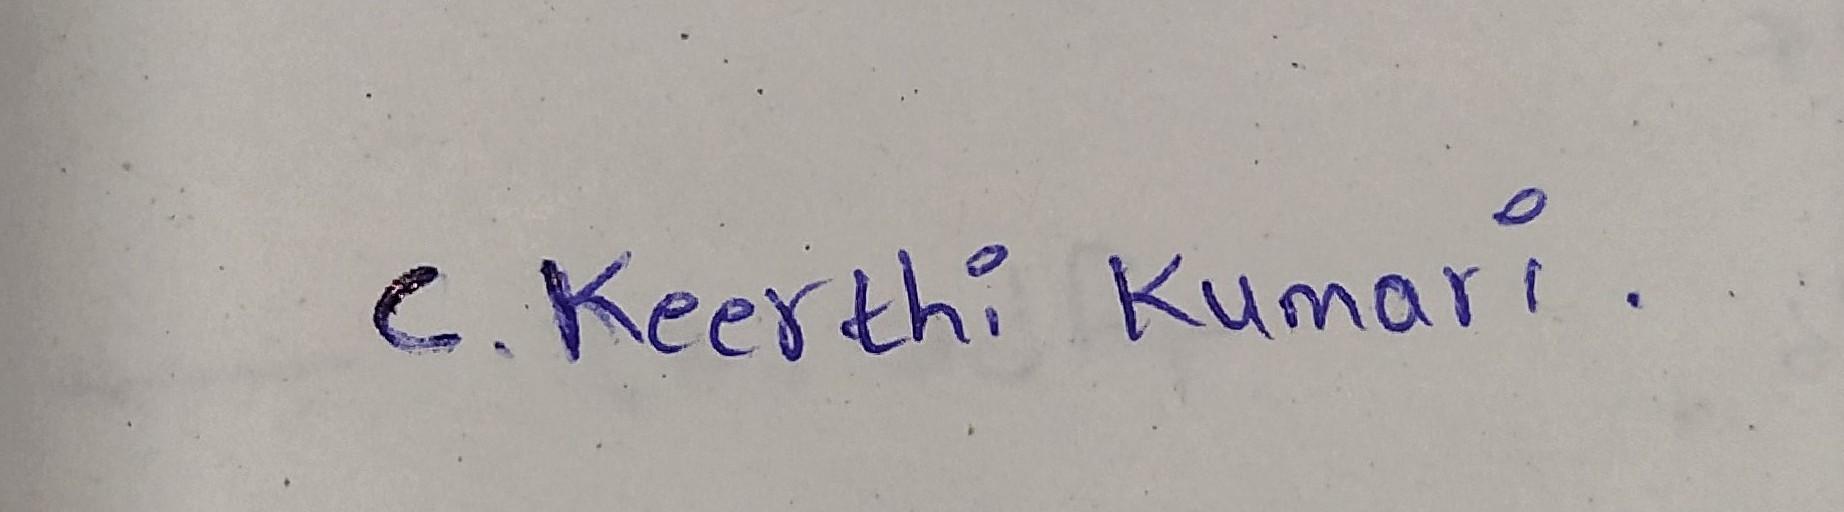 C. Keerthi Kumari.